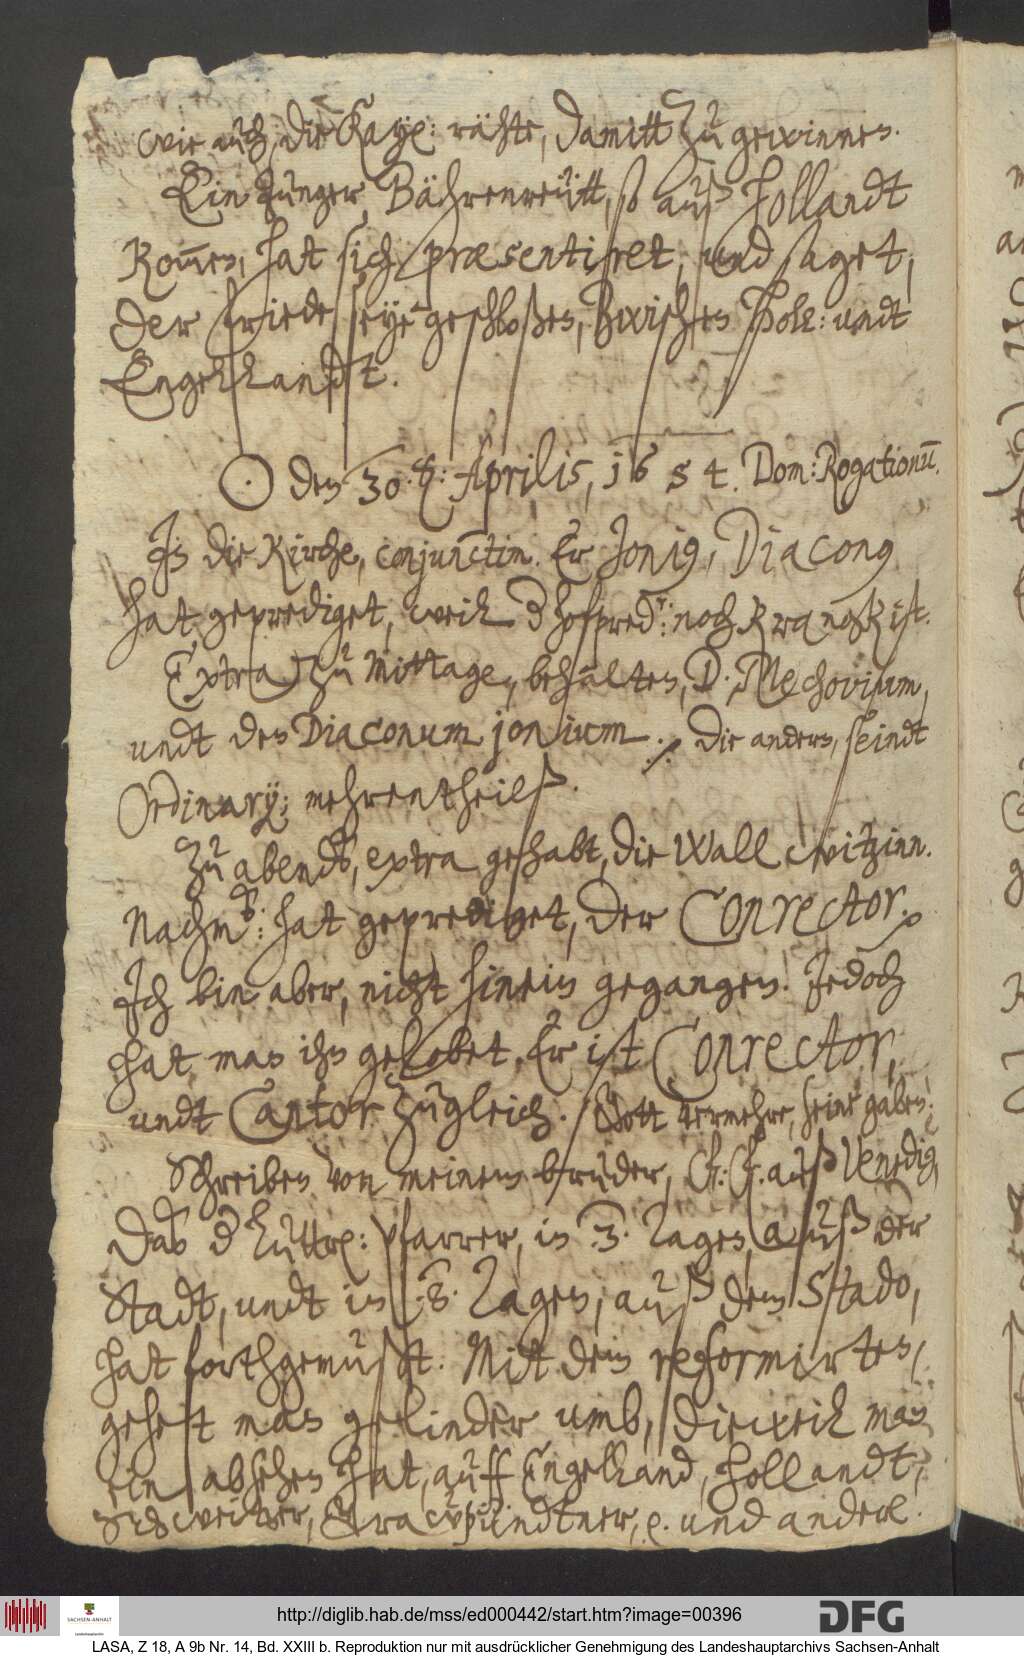 wie auch, die Kayß: rähte, damitt zu gewinnen.
Ein Junger Bährenreütt, so auß Hollandt
Kom̄en, hat sich præsentiret, und saget,
der friede seye geschloßen, zwischen Holl: undt
Engellandt.
☉ den 30. Aprilis, 1654. Dom: Rogationū.
In die Kirche, conjunctim. Er Jonig, Diacong
hat geprediget, weil d hofpred: noch Kranck ist.
Extra zu Mittage, behalten, D. Mechovium,
undt den Diaconum jonium. Die andern, seindt
Ordinarÿ: mehrentheilß.
Zu abendt, extra gehabt, die Wallwitzinn.
Nachm: hat geprediget, der Conrector.
Ich bin aber, nicht hinein gegangen. Jedoch
hat man ihn gelobet. Er ist Conrector,
undt Cantor zugleich. Gott vermehre, seine gaben.
Schreiben von meinem bruder, auß Venedig,
Das d Lutter: pfarrer, in 3. Tagen, auß der
Stadt, undt in 8. Tagen, auß dem Stado,
hat forthgemust. Mit dem reformirten,
gehet man gelinder umb, dieweil man
ein absehen hat, auff Engelland, Hollandt,
Schweitzer, Grawpündtner, und andere.
http://diglib.hab.de/mss/ed000442/start.htm?image=00396
DFG
SACHSEN-ANHALT
LASA, Z 18, A 9b Nr. 14, Bd. XXIII b. Reproduktion nur mit ausdrücklicher Genehmigung des Landeshauptarchivs Sachsen-Anhalt